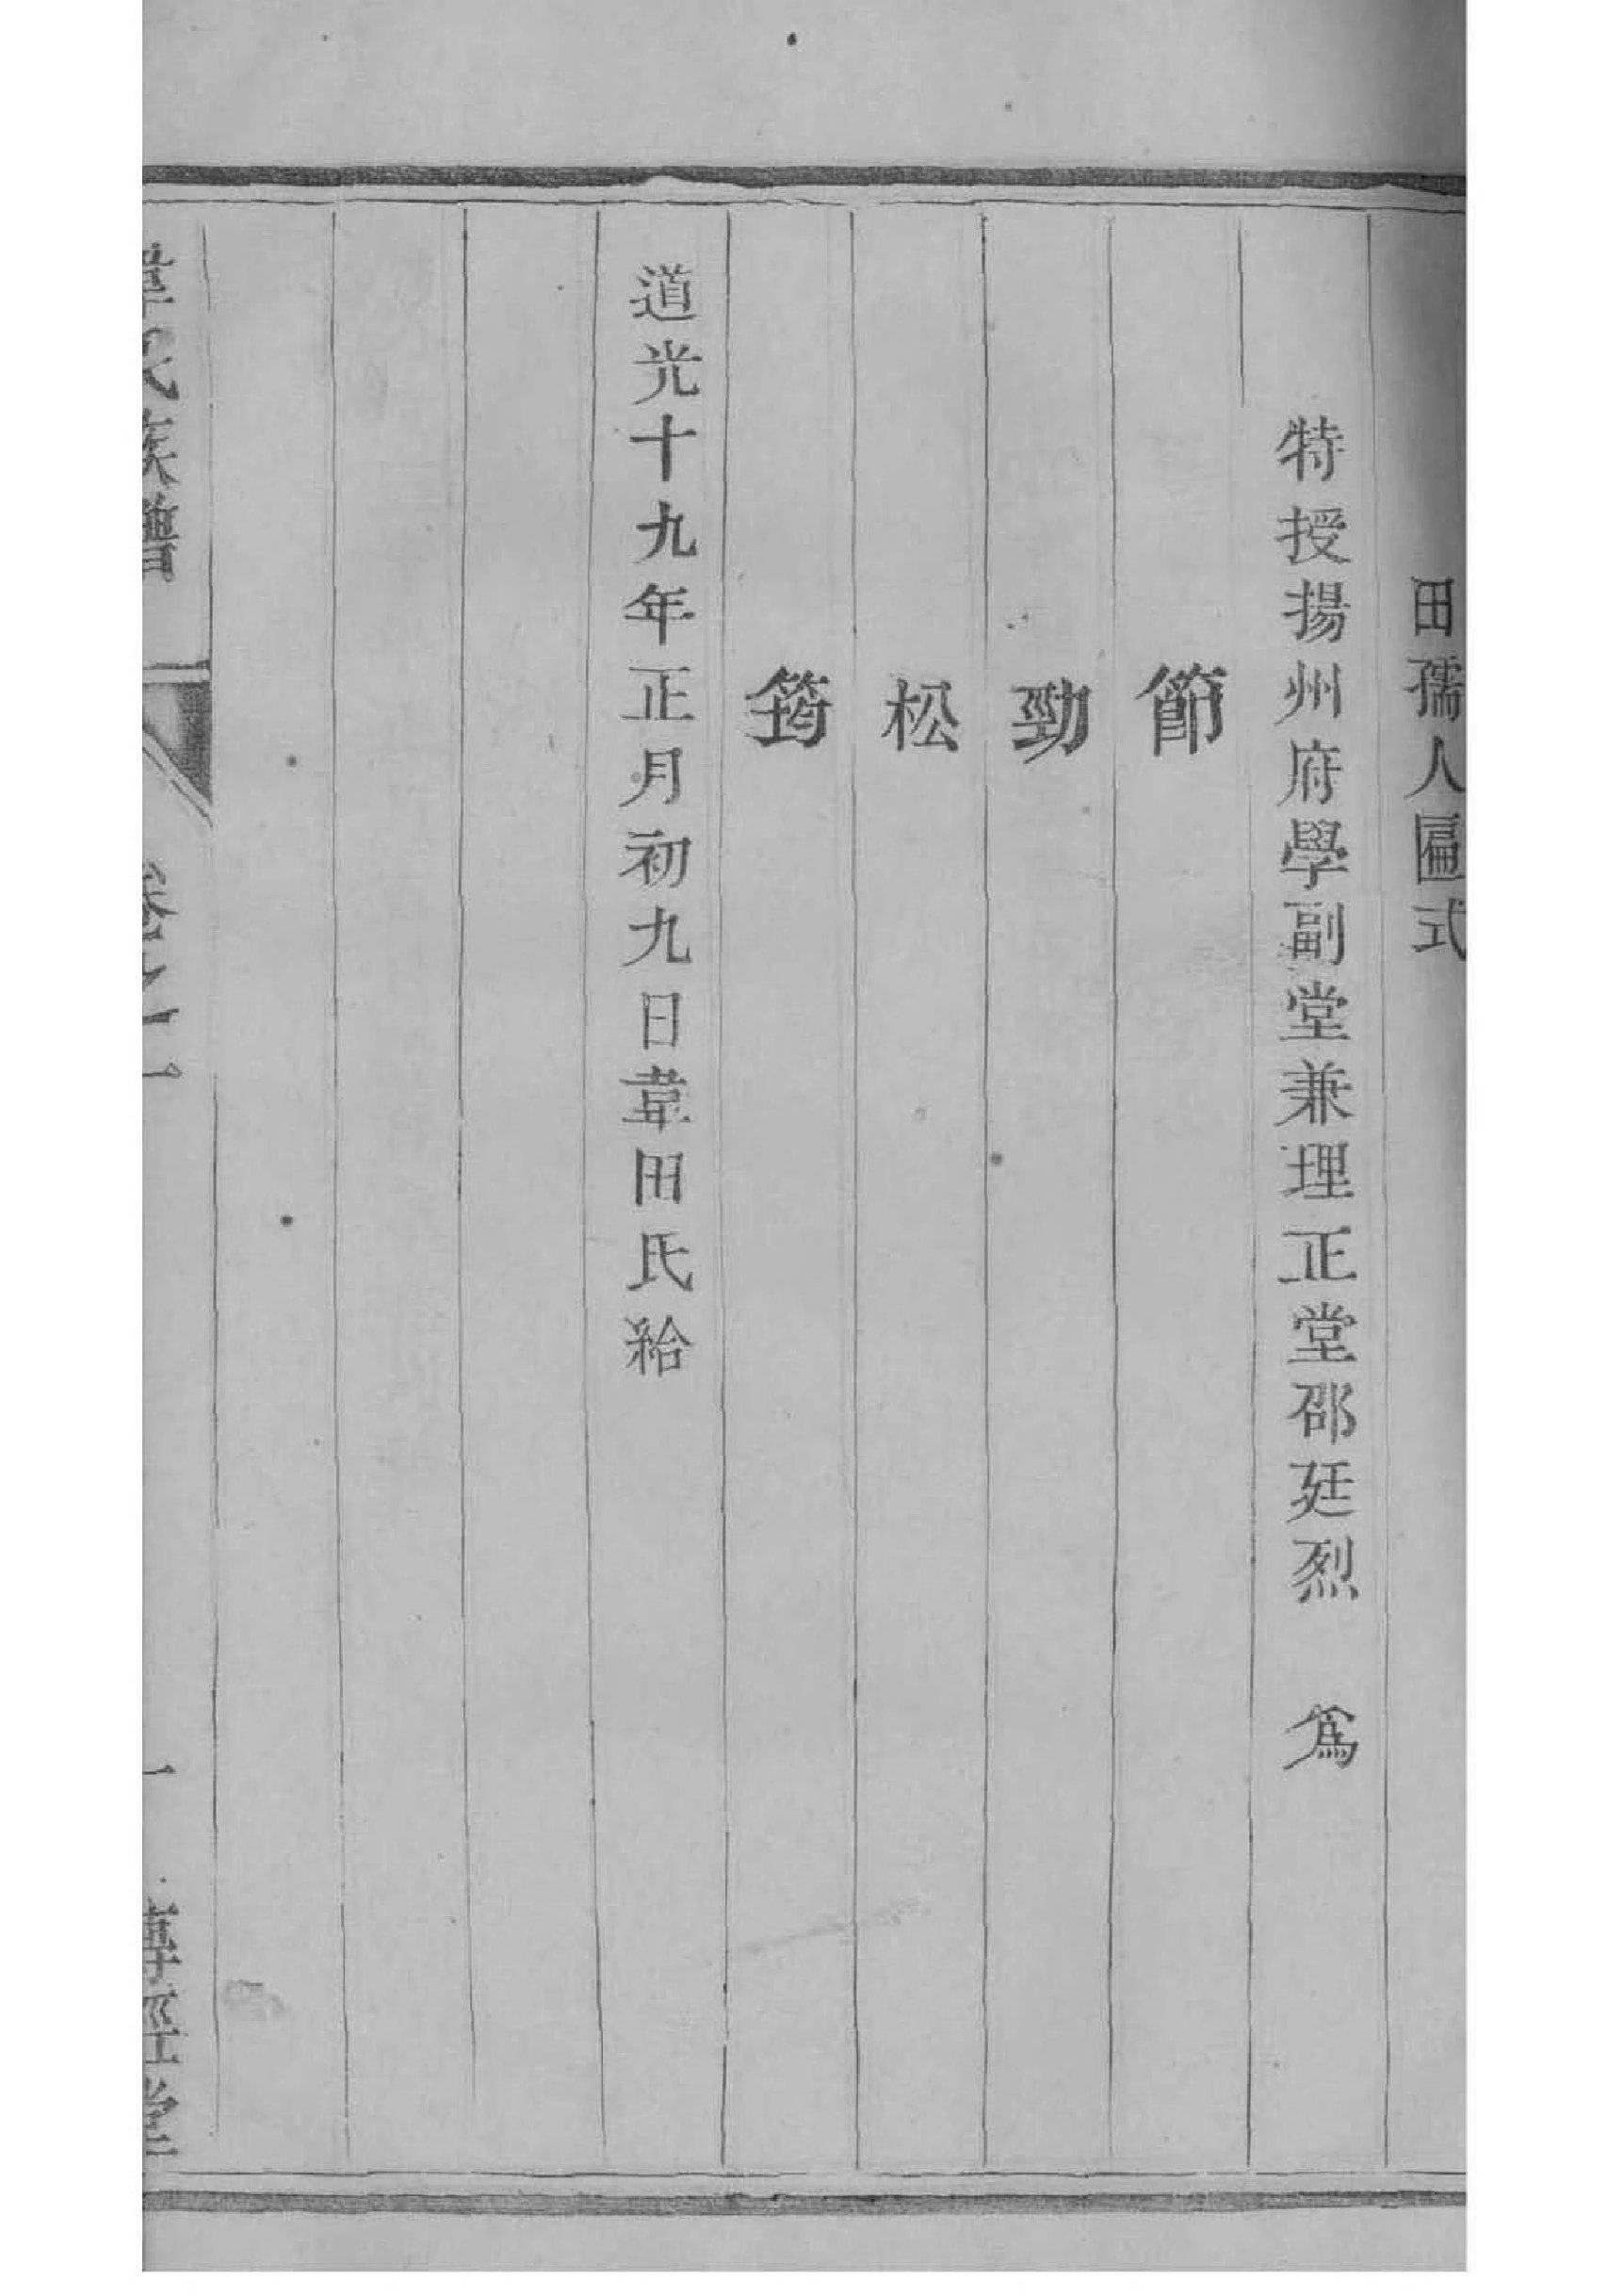 田孺人匾式
特授揚州府學副堂兼理正堂邵廷烈　為
節
勁
松
筠
道光十九年正月初九日韋田氏給
韋氏族譜　卷之一　一　傳經堂